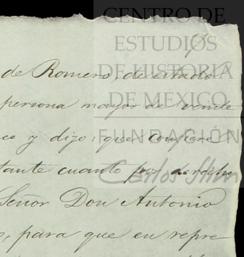 CENTRO DE
ESTUDIOS
DE HISTORIA
DE MEXICO
FUNDACIÓN
Carlos Slim
de Romero, de estado
persona mayor de veinte
ce y dijo: que confiere
tante cuanto por derecho
Señor Don Antonio
s, para que en repre